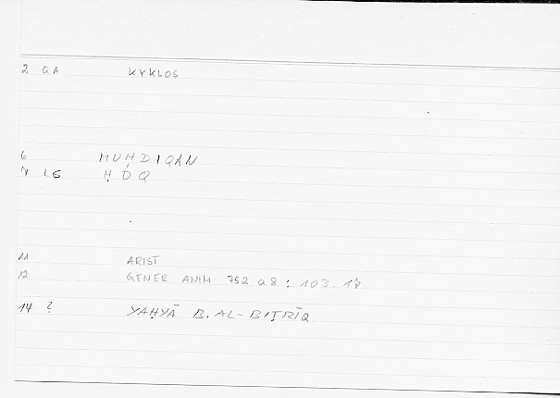 2 QA KYKLOS
6 MUḤDIQAN
7 LG ḤDQ
11 ARIST
12 GENER ANIM 752 a 8 : 103. 17
14 ? YAḤYĀ B. AL-BIṬRĪQ